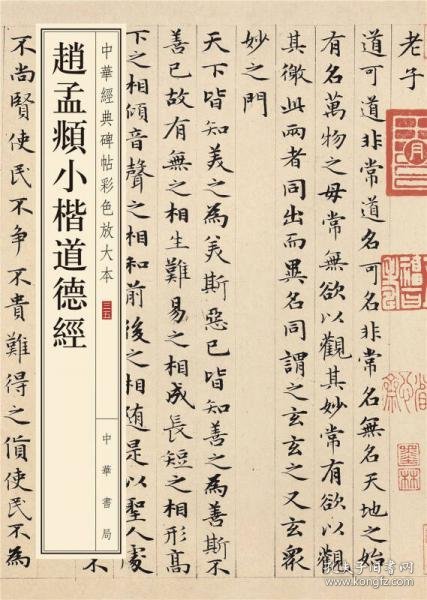 老子
道可道非常道名可名非常名無名天地之始
有名萬物之母常無欲以觀其妙常有欲以觀
其徼此兩者同出而異名同謂之玄玄之又玄衆
妙之門
天下皆知美之為美斯惡已皆知善之為善斯不
善已故有無之相生難易之相成長短之相形高
下之相傾音聲之相和前後之相随是以聖人處
不
中華經典碑帖彩色放大本 三五
中華書局
趙孟頫小楷道德經
不尚賢使民不争不貴難得之貨使民不為
墨林
孔夫子旧书网
www.kongfz.com